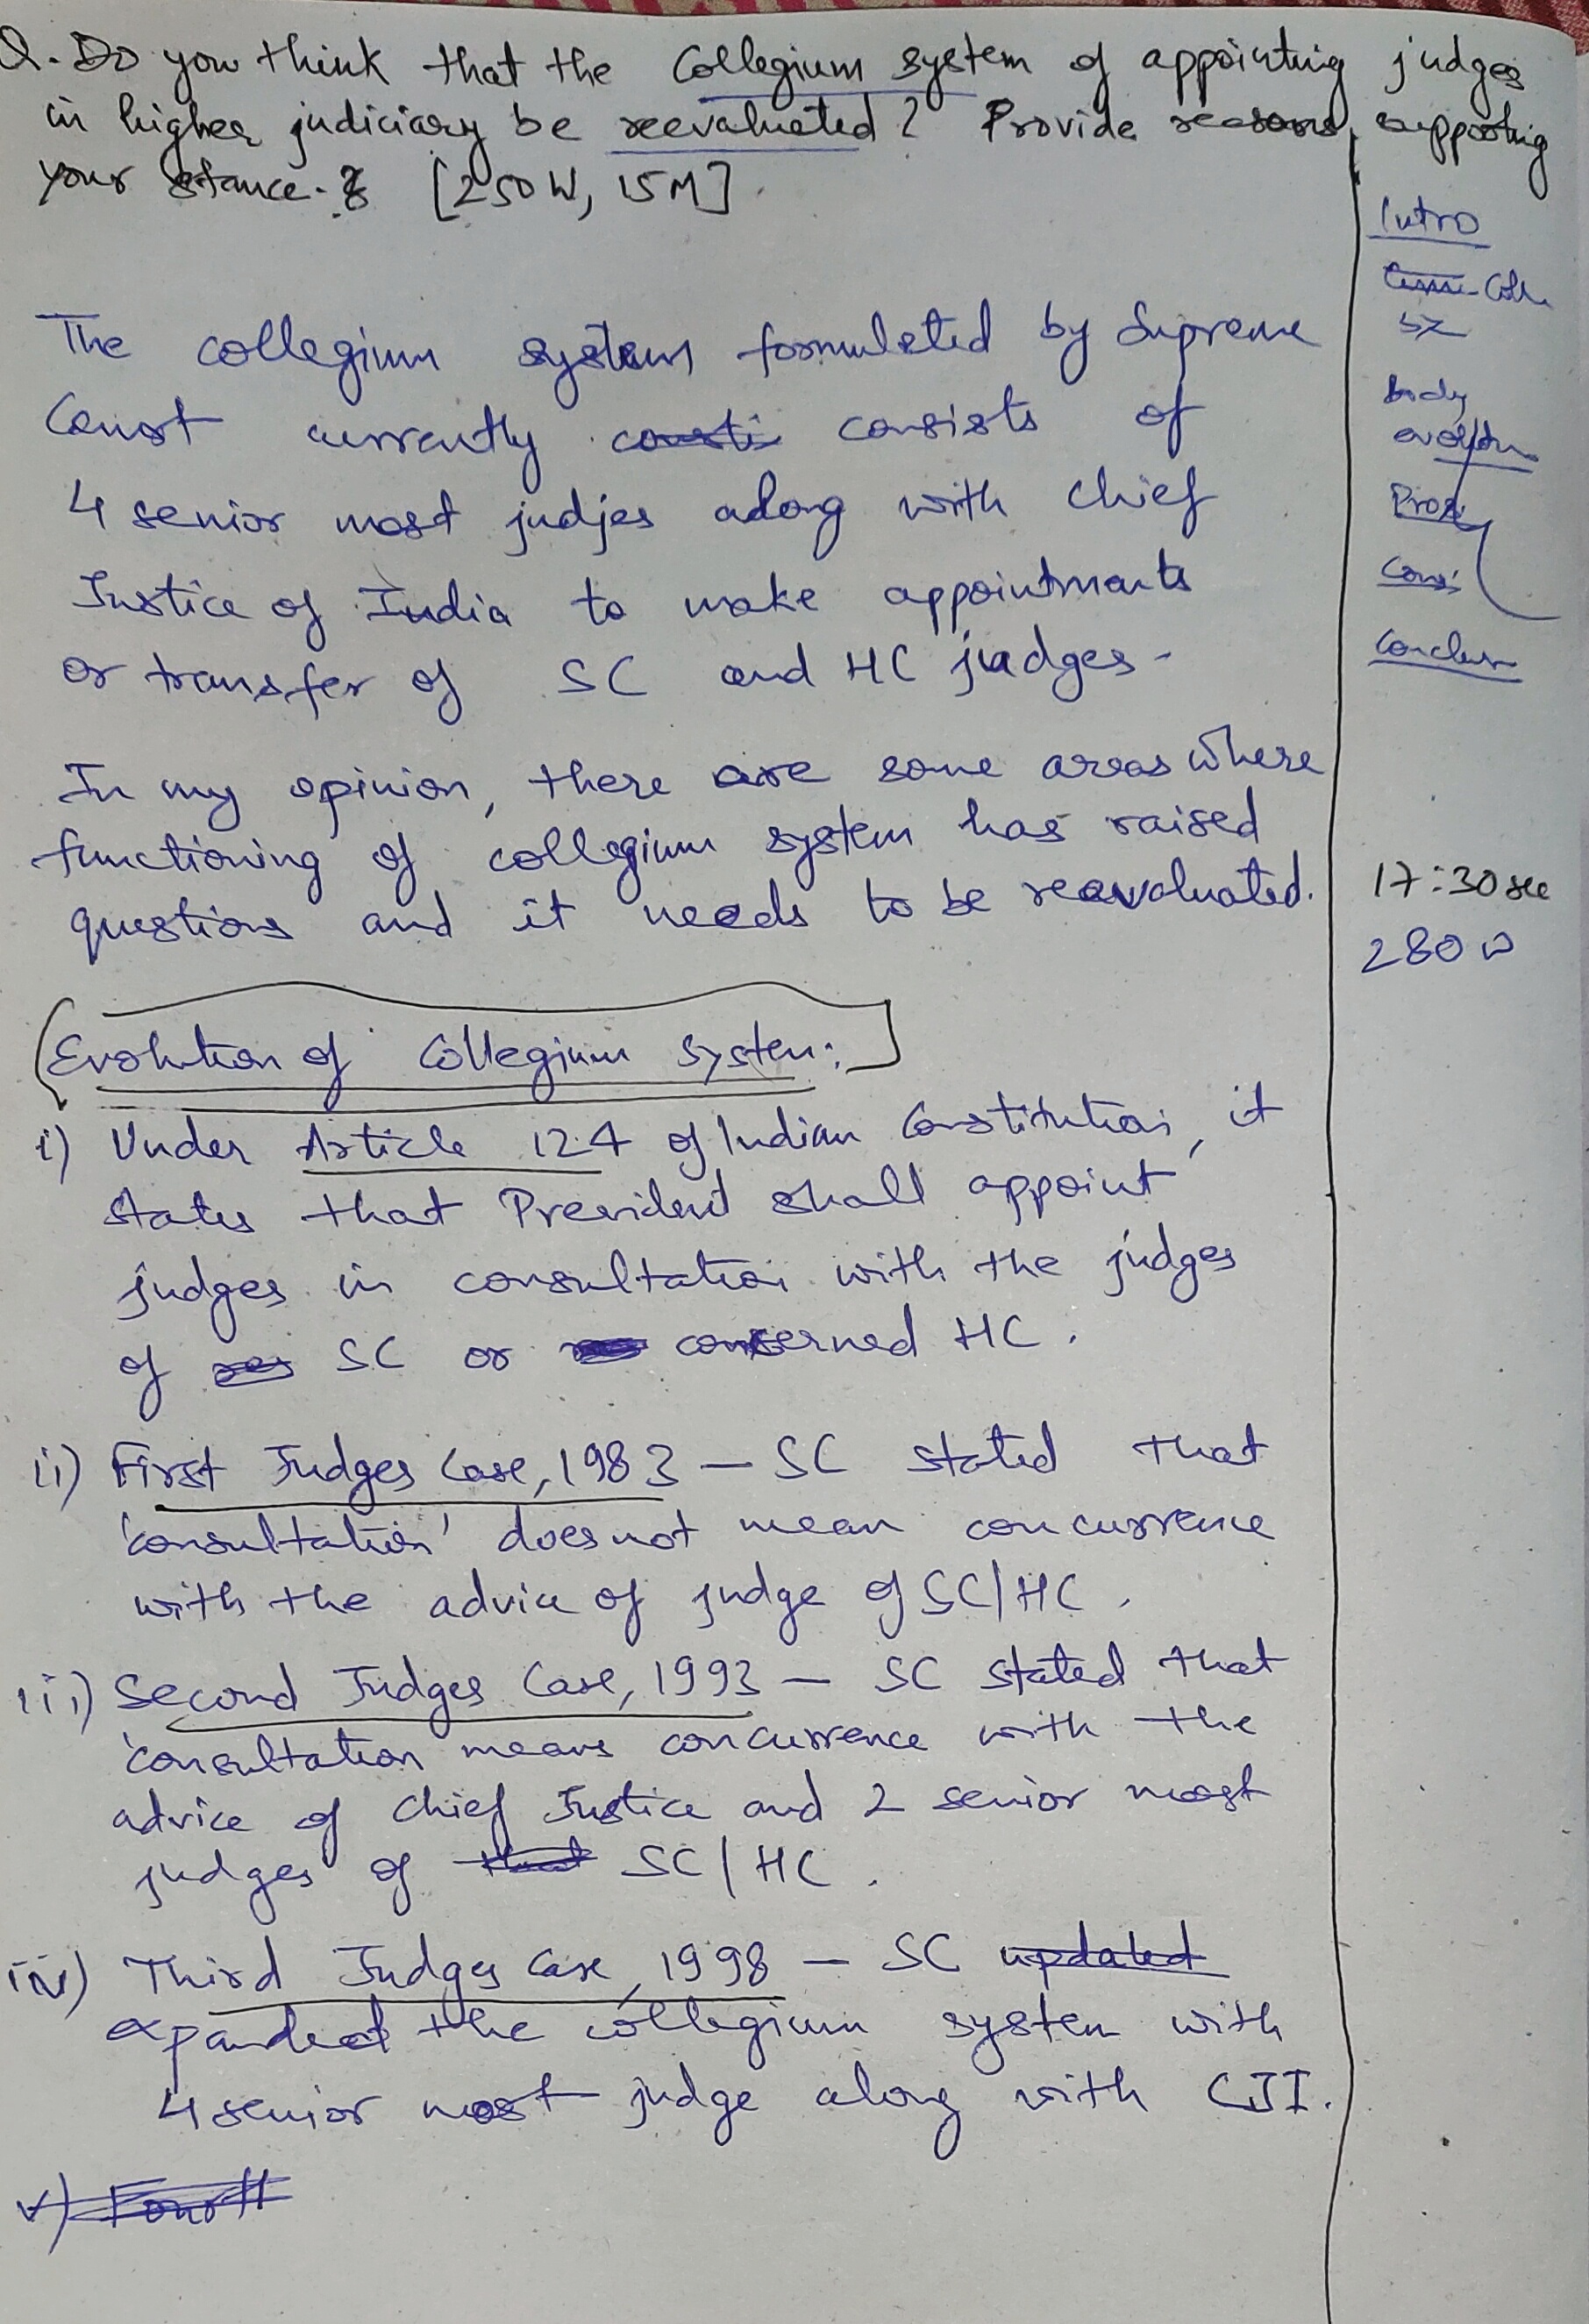 Q. Do you think that the Collegium system of appointing judges
in higher judiciary be reevaluated? Provide reasons, supporting
your stance. [250 W, 15M].
Intro
Coll.
body
evolution
Pros
Cons
Conclusn
The collegium system formulated by Supreme
Court currently consists of
4 senior most judjes along with Chief
Justice of India to make appointments
or transfer of SC and HC judges-
In my opinion, there are some areas where
functioning of collegium system has raised
questions and it needs to be reavaluated.
17:30 sec
280 W
Evolution of Collegium System:
i) Under Article 124 of Indian Constitution, it
states that President shall appoint
judges in consultation with the judges
of SC or concerned HC.
ii) First Judges Case, 1983 – SC stated that
'consultation' does not mean concurrence
with the advice of judge of SC/HC.
iii) Second Judges Case, 1993 – SC stated that
'consultation means concurrence with the
advice of Chief Justice and 2 senior most
judges of that SC/HC.
iv) Third Judges Case, 1998 – SC updated
expanded the collegium system with
4 senior most judge along with CJI.
v) Fourth